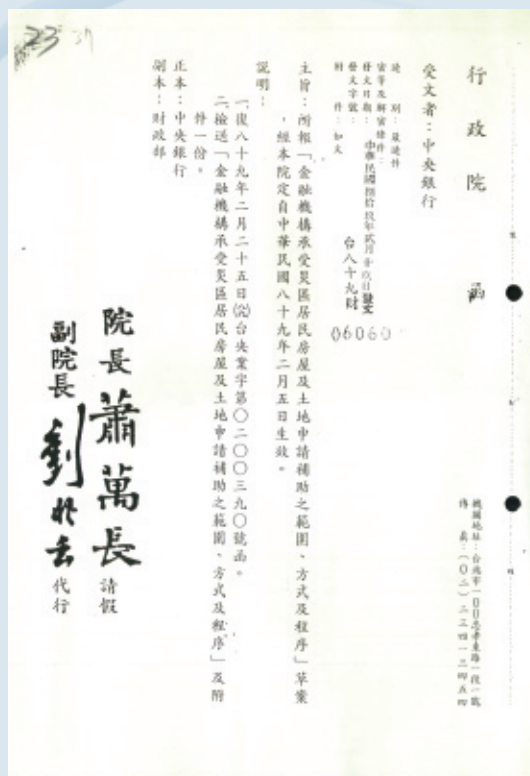 行政院　函
機關地址：台北市一００忠孝東路一段一號
傳　真：(０二)二三四一三四五四
受文者：中央銀行
速　別：最速件
密等及解密條件：
發文日期：中華民國捌拾玖年貳月廿　日發文
發文字號：台八十九財 06060
附　件：如文
主旨：所報「金融機構承受災區居民房屋及土地申請補助之範圍、方式及程序」草案
，經本院定自中華民國八十九年二月五日生效。
說明：
一、復八十九年二月二十五日　台央業字第○二○○三九○號函。
二、檢送「金融機構承受災區居民房屋及土地申請補助之範圍、方式及程序」及附
件一份。
正本：中央銀行
副本：財政部
院長蕭萬長請假
副院長劉兆玄代行